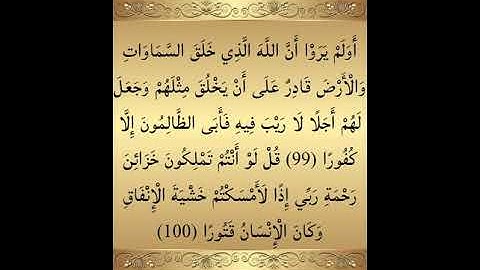 أَوَلَمْ يَرَوْا أَنَّ اللَّهَ الَّذِي خَلَقَ السَّمَاوَاتِ
وَالْأَرْضَ قَادِرٌ عَلَى أَنْ يَخْلُقَ مِثْلَهُمْ وَجَعَلَ
لَهُمْ أَجَلًا لَا رَيْبَ فِيهِ فَأَبَى الظَّالِمُونَ إِلَّا
كُفُورًا (99) قُلْ لَوْ أَنْتُمْ تَمْلِكُونَ خَزَائِنَ
رَحْمَةِ رَبِّي إِذًا لَأَمْسَكْتُمْ خَشْيَةَ الْإِنْفَاقِ
وَكَانَ الْإِنْسَانُ قَتُورًا (100)